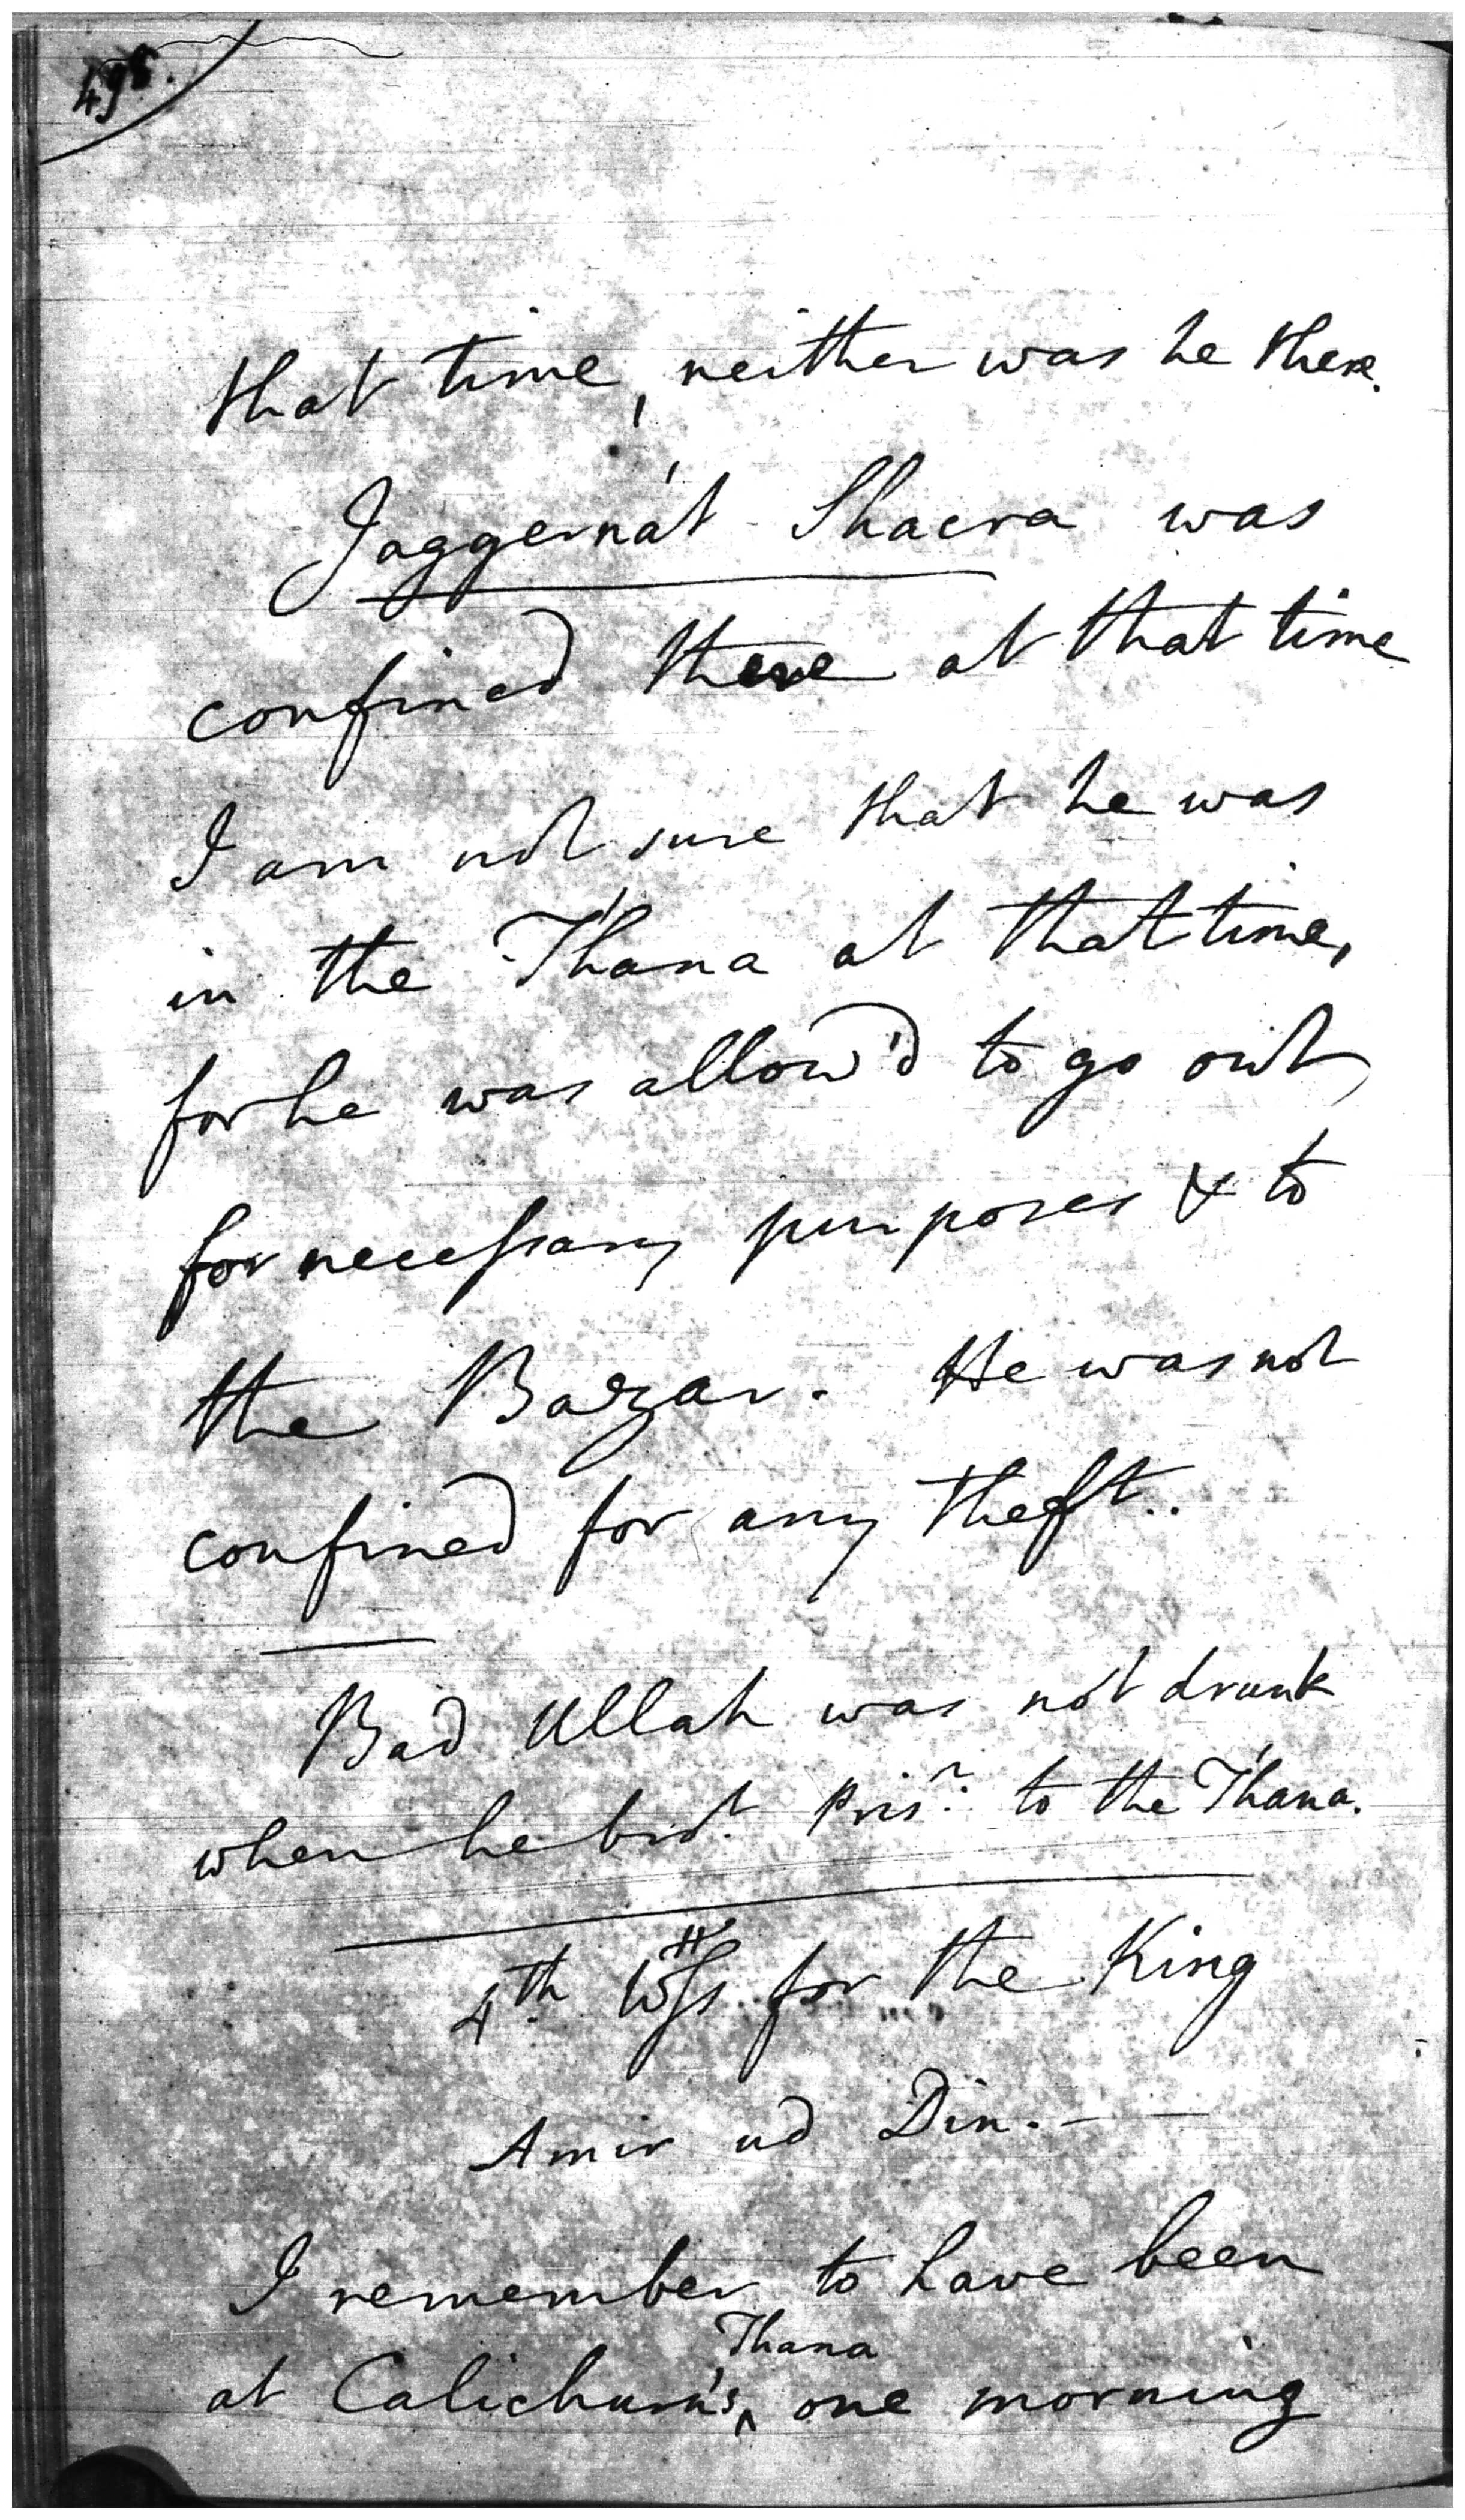 498.
that time, neither was he there.
Jaggernát Shacra was
confined there at that time
I am not sure that he was
in the T'hana at that time,
for he was allow'd to go out
for necessary purposes & to
the Bazar. He was not
confined for any theft..
Bad Ullah was not drunk
when he bro.t Pris.r to the T'hana.
4.th Wss for the King
Amir ud Din. — —
I remember to have been
at Calichurn's ^Thana one morning